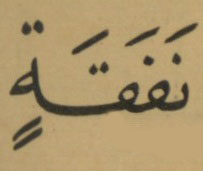 نَفَقَةٍ